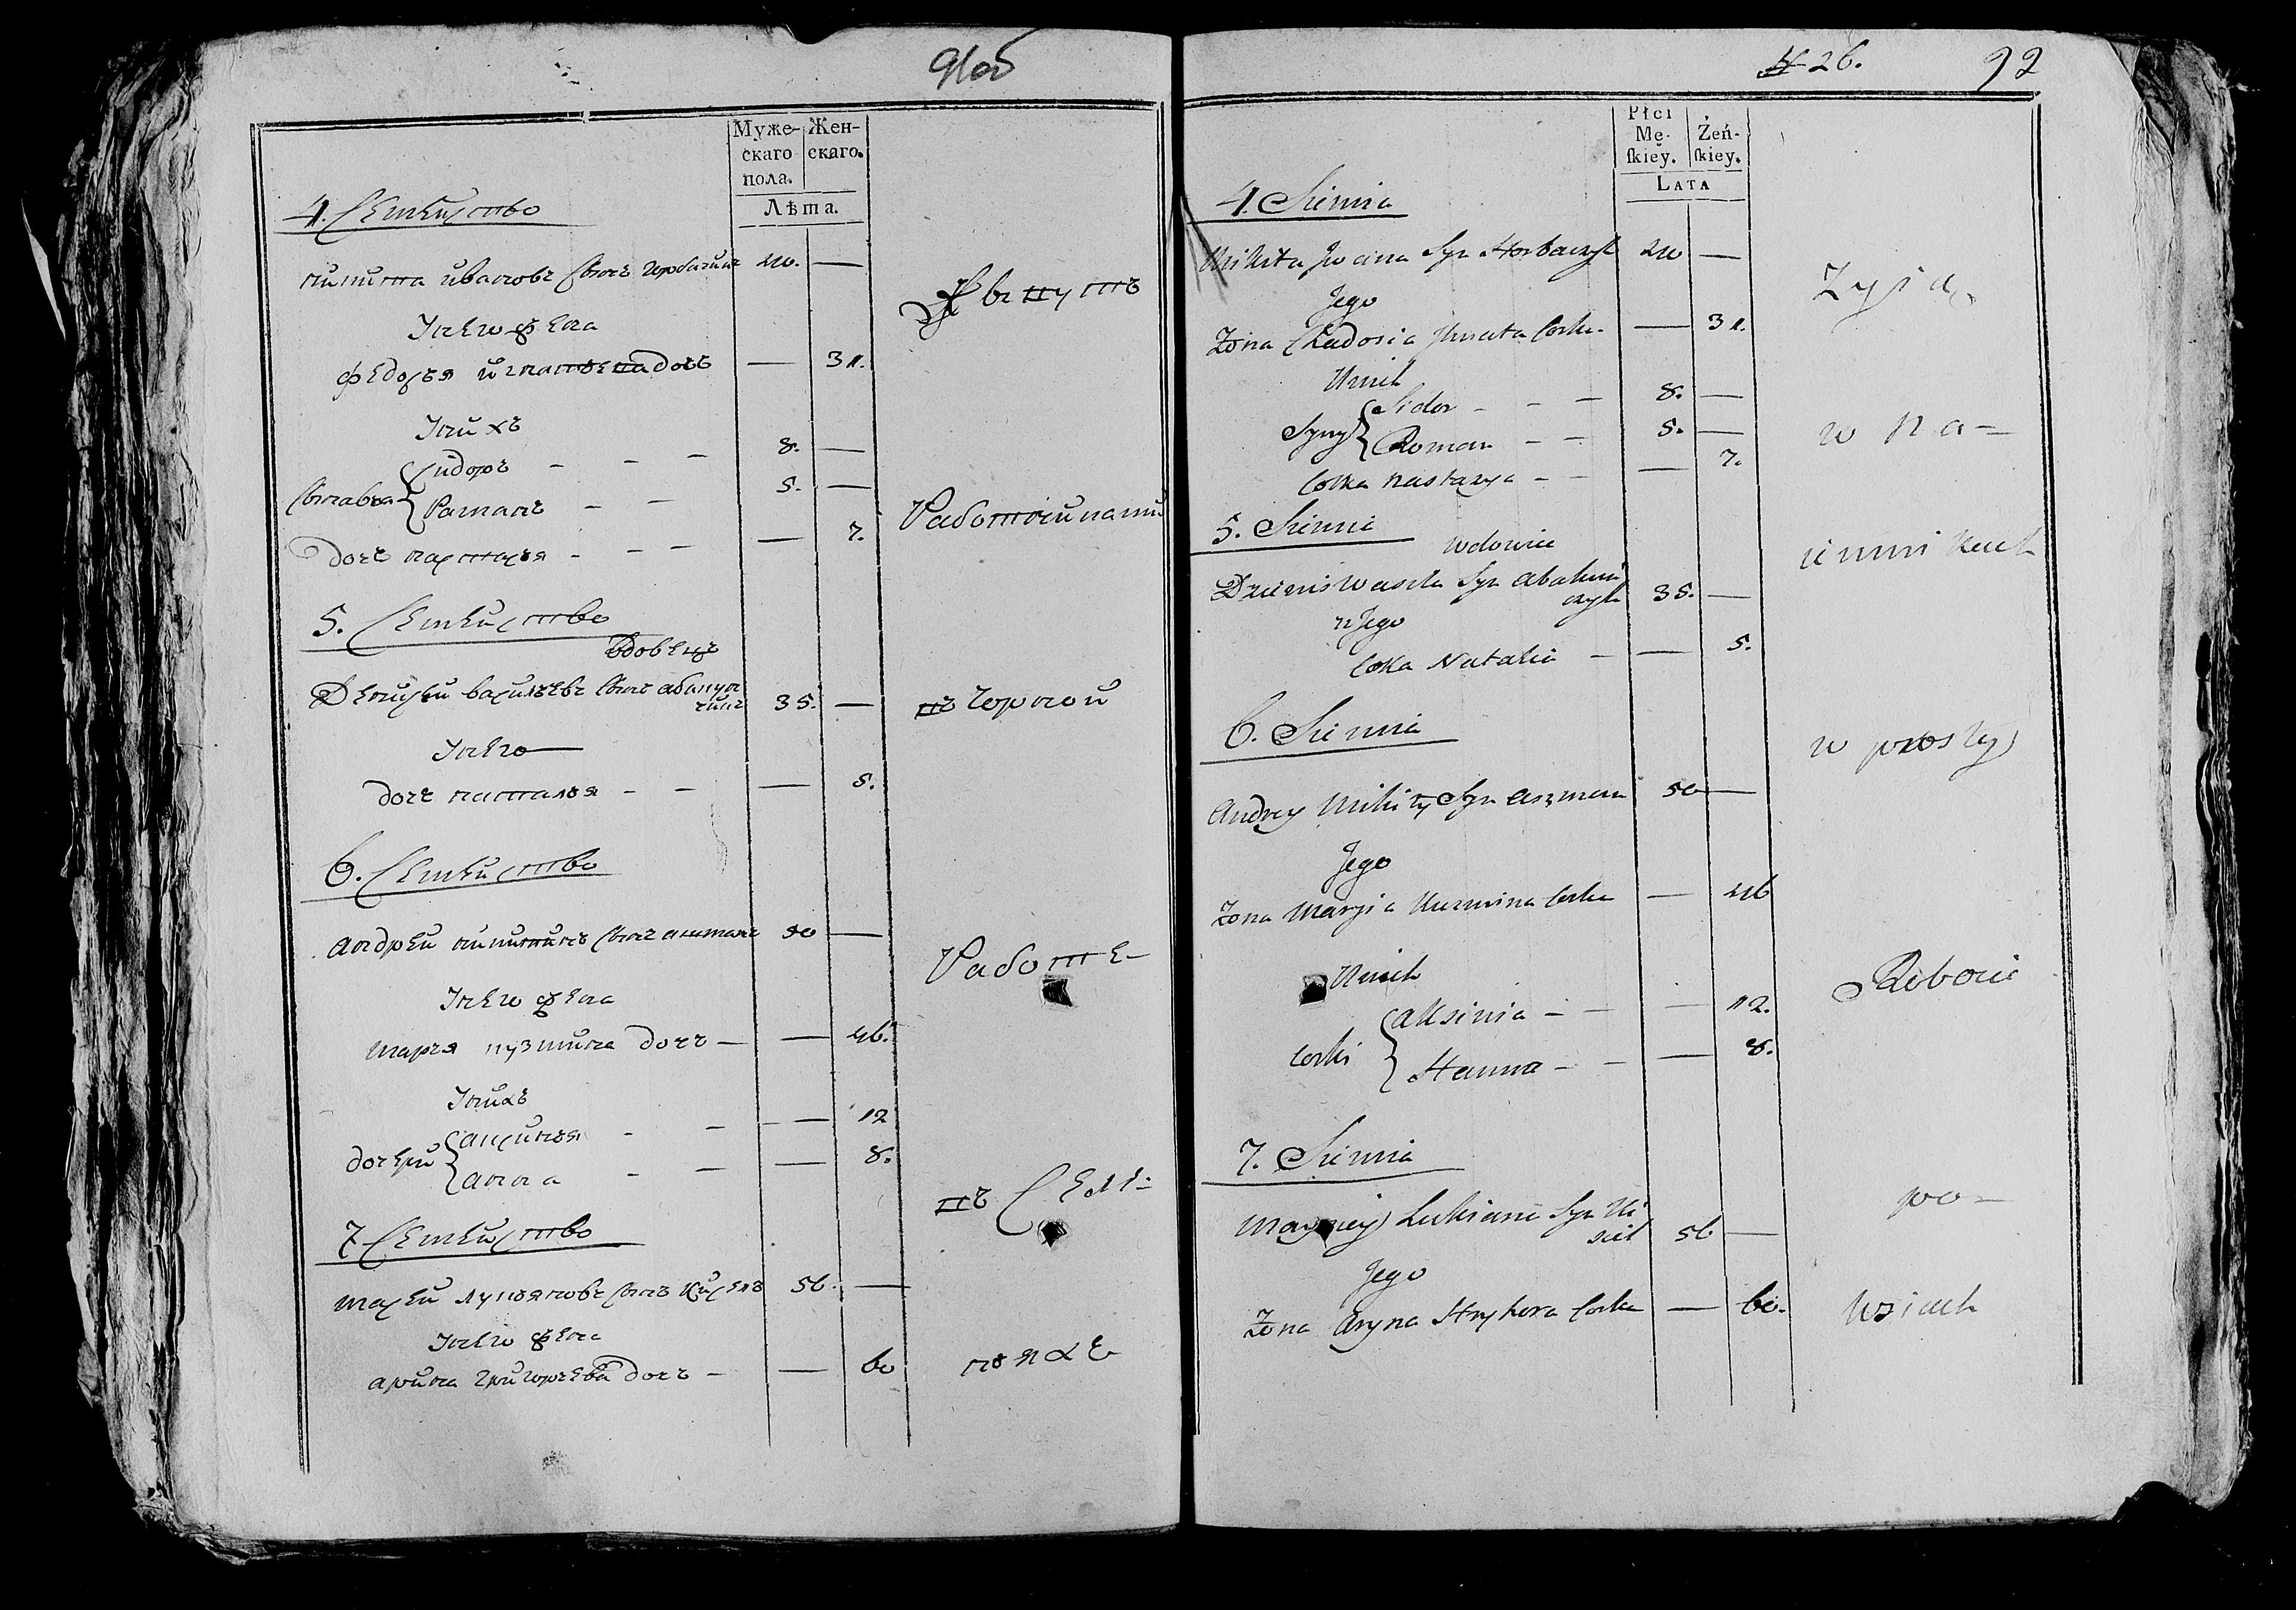 91об
Муже- Жен-
скаго скаго.
пола.
Лѣта.
4. Семейство
никита ивановъ сынъ горбачикъ 40. —
Унего жена
Федосья игнатьева дочь — 31.
Унихъ
сыновья { сидоръ - - - 8. —
романъ - - 5. —
дочь настасья - - - — 7.
5. Семейство
вдовецъ
Денисей васильевъ сынъ абакун
чикъ 35. —
Унего
дочь наталья - - — 5.
6. Семейство
андрей никитинъ сынъ ашманъ 50 —
Унего жена
марья кузмина дочь - — 46.
Унихъ
дочери { аксинья - - — 12
анна - - — 8.
7 Семейство
мосей лукьяновъ сынъ киселъ 56. —
Унего жена
арина григорьева дочь - — 60
Живутъ
Работниками
въ чорной
Работе
въ Селе-
ніяхъ
№ 26. 92
Płci
Mę- Żeń-
ſkiey. ſkiey.
LATA
4. Siemia
Mikita Jwana Syn Horbaczyk 40 —
Jego
Żona Chadosia Jhnata Corka — 31.
Unich
Syny { Sidor - - - 8. —
Roman - - 5. —
Corka Nastazya - - — 7.
5. Siemia
wdowiec
Dzienis Wasila Syn Abakun
czyk 35. —
u Jego
Corka Natalia - — 5.
6. Siemia
Andrey Mikity Syn Aszman 50 —
Jego
Żona Maryia Kuzmina Corka — 46
Unich
Corki { Aksinia - - — 12.
Hanna - - — 8.
7. Siemia
Lukiana Syn Ki
siel 56 —
Jego
Żona Aryna Hryhora Corka — 60.
Zyią
w na-
iemnikach
w prosty
Robocie
po-
wsiach